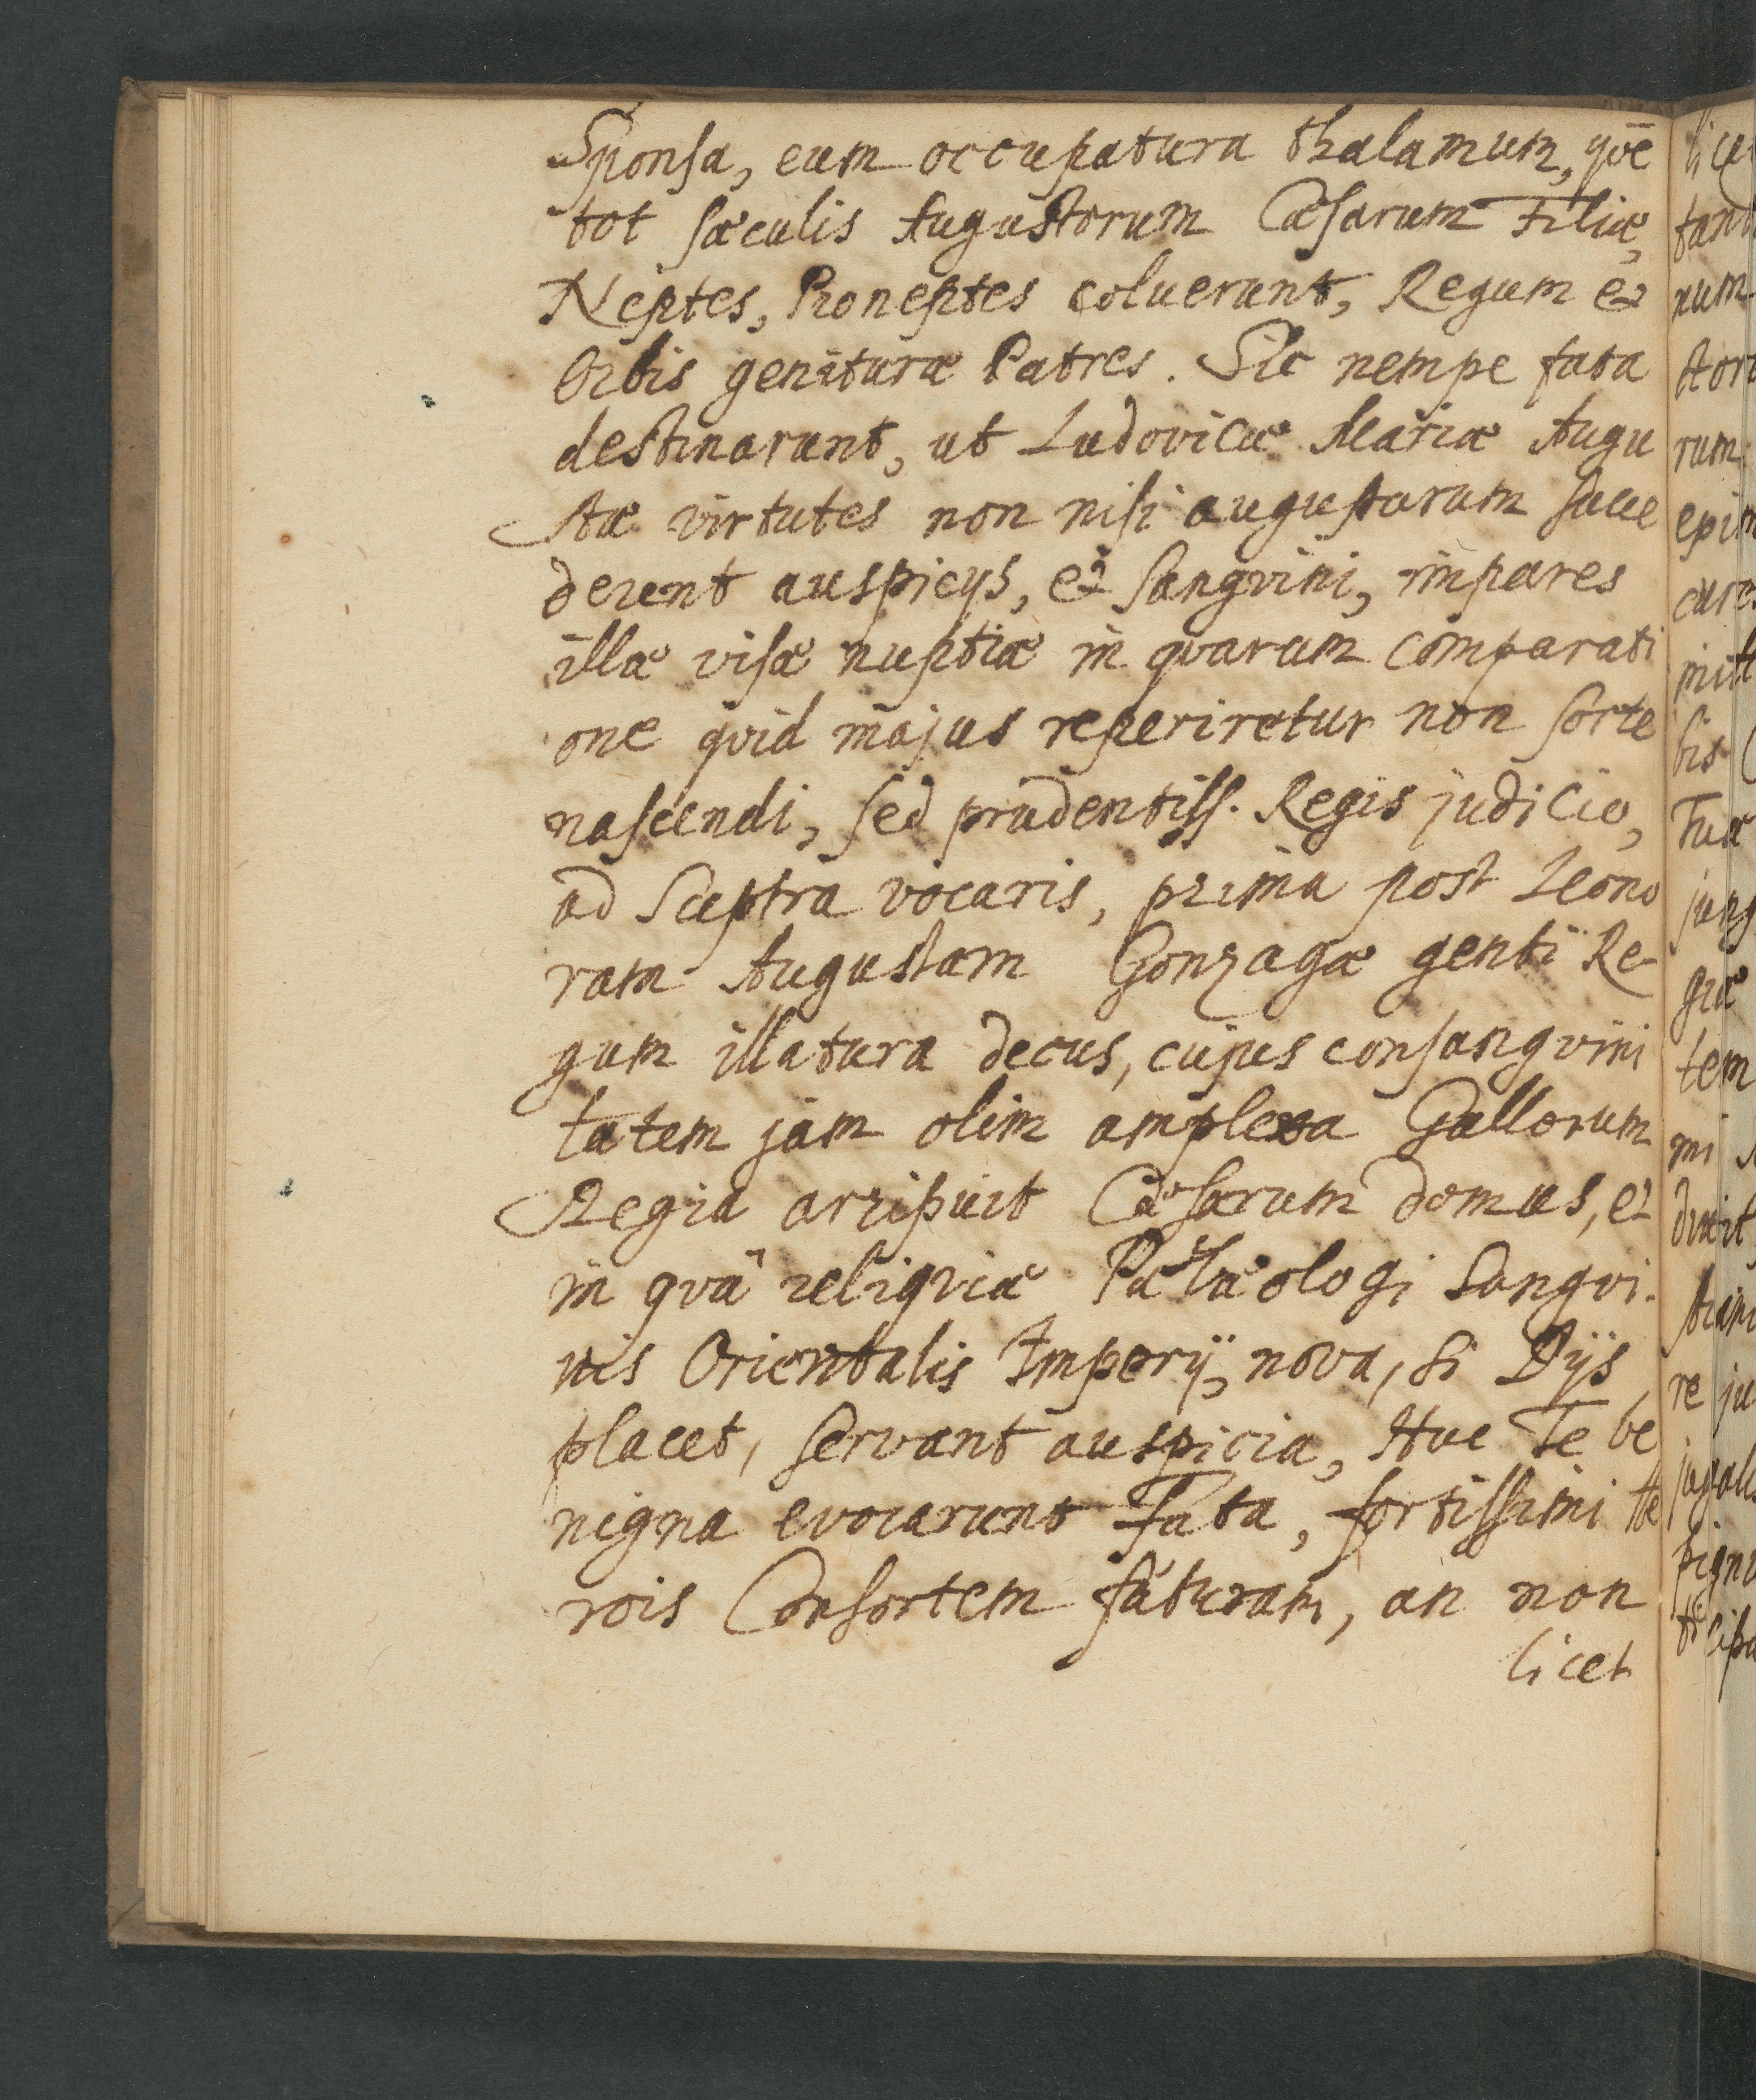 Sponsa, eum occupatura thalamum, qvē
tot sæculis Augustorum Cæsarum Filiæ,
Neptes, Proneptes coluerunt, Regum et
Orbis genituræ Patres. Sic nempe fata
destinarunt, ut Ludovicæ Mariæ Augu
stæ virtutes non nisi augustarum succe
derent auspicijs, et sangvini, impares
illæ visæ nuptiæ in qvarum comparati
one qvid majus reperiretur non sorte
nascendi, sed prudentiss. Regis judicio,
ad Sceptra vocaris, prima post Leono
ram Augustam Gonzagæ genti Re-
gum illatura decus, cujus consangvini
tatem jam olim amplexa Gallorum
Regia arripuit Cæsarum domus, et
in qvâ reliqviæ Palæologi Sangvi-
nis Orientalis Imperij, nova, si Dijs
placet, servant auspicia, Huc Te be
nigna evocarunt Fata, fortissimi He
rois Consortem futuram, an non
licet